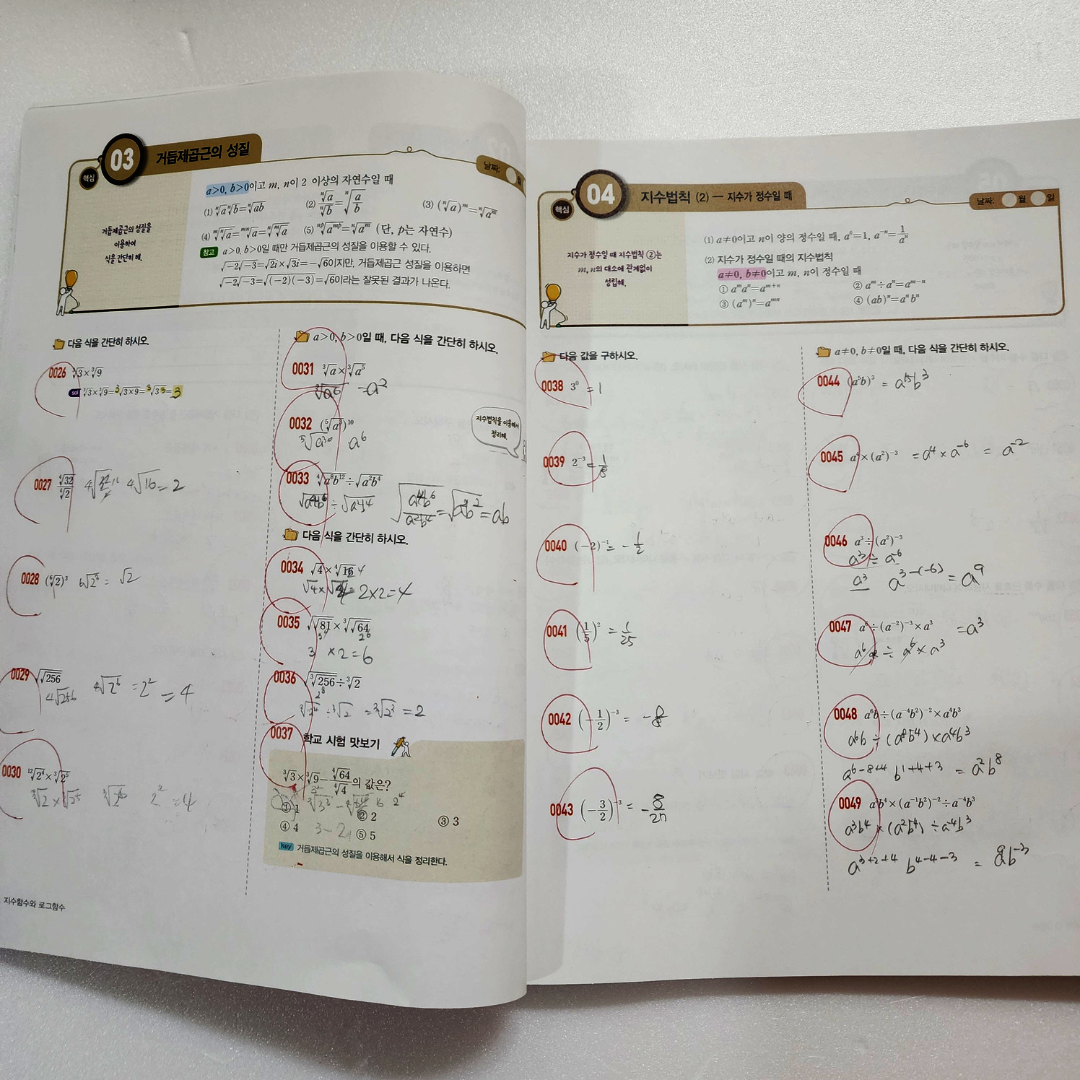 핵심 03 거듭제곱근의 성질
날짜:
거듭제곱근의 성질을
이용하여
식을 간단히 해.
a>0, b>0이고 m, n이 2 이상의 자연수일 때
(1) ⁿ√a ⁿ√b=ⁿ√ab (2) ⁿ√a/ⁿ√b=ⁿ√(a/b) (3) (ⁿ√a)ᵐ=ⁿ√aᵐ
(4) ᵐ√ⁿ√a=ᵐⁿ√a=ⁿ√ᵐ√a (5) ⁿᵖ√aᵐᵖ=ⁿ√aᵐ (단, p는 자연수)
참고 a>0, b>0일 때만 거듭제곱근의 성질을 이용할 수 있다.
√-2√-3=√2i×√3i=-√6이지만, 거듭제곱근 성질을 이용하면
√-2√-3=√(-2)(-3)=√6이라는 잘못된 결과가 나온다.
다음 식을 간단히 하시오.
0026 ³√3×³√9
³√3×³√9=³√3×9=³√3³=3
0027 ⁴√32/⁴√2 ⁴√16=2
0028 (⁶√2)³ ⁶√2³=√2
0029 √√256
⁴√256 ⁴√2⁸=2²=4
0030
2²=4
a>0, b>0일 때, 다음 식을 간단히 하시오.
0031 ³√a×³√a⁵
³√a⁶ =a²
0032 (⁵√a³)¹⁰
⁵√a³⁰ a⁶
지수법칙을 이용해서
정리해.
0033
=ab
다음 식을 간단히 하시오.
0034 √4×⁴√16
2×2=4
0035 √√81×³√√64
3 ×2=6
0036 √³√256÷³√2
³√2⁴÷³√2 =³√2³=2
0037 학교 시험 맛보기
³√3×³√9-⁴√64/⁴√4의 값은?
① 1 ② 2 ③ 3
④ 4 ⑤ 5
3-2
Key 거듭제곱근의 성질을 이용해서 식을 정리한다.
지수함수와 로그함수
핵심 04 지수법칙 (2) — 지수가 정수일 때
날짜: 월 일
지수가 정수일 때 지수법칙 ②는
m, n의 대소에 관계없이
성립해.
(1) a≠0이고 n이 양의 정수일 때, a⁰=1, a⁻ⁿ=1/aⁿ
(2) 지수가 정수일 때의 지수법칙
a≠0, b≠0이고 m, n이 정수일 때
① aᵐaⁿ=aᵐ⁺ⁿ ② aᵐ÷aⁿ=aᵐ⁻ⁿ
③ (aᵐ)ⁿ=aᵐⁿ ④ (ab)ⁿ=aⁿbⁿ
다음 값을 구하시오.
0038 3⁰ =1
0039 2⁻³ =1/8
0040 (-2)⁻¹ =-1/2
0041 (1/5)² =1/25
0042 (-1/2)⁻³ = -8
0043 (-3/2)⁻³ = -8/27
a≠0, b≠0일 때, 다음 식을 간단히 하시오.
0044 (a⁵b)³ = a¹⁵b³
0045 a⁴×(a²)⁻³ =a⁴×a⁻⁶ = a⁻²
0046 a³÷(a²)⁻³
a³⁻⁽⁻⁶⁾ =a⁹
0047 a⁶÷(a⁻²)⁻³×a³ =a³
a⁶ ÷ a⁶×a³
0048 a⁶b÷(a⁻⁴b²)⁻²×a⁴b³
a⁶b ÷(a⁸b⁻⁴)×a⁴b³
a⁶⁻⁸⁺⁴ b¹⁺⁴⁺³ = a²b⁸
0049 a³b⁴×(a⁻¹b²)⁻²÷a⁻⁴b³
a³b⁴×(a²b⁻⁴)÷a⁻⁴b³
a³⁺²⁺⁴ b⁴⁻⁴⁻³ = a⁹b⁻³